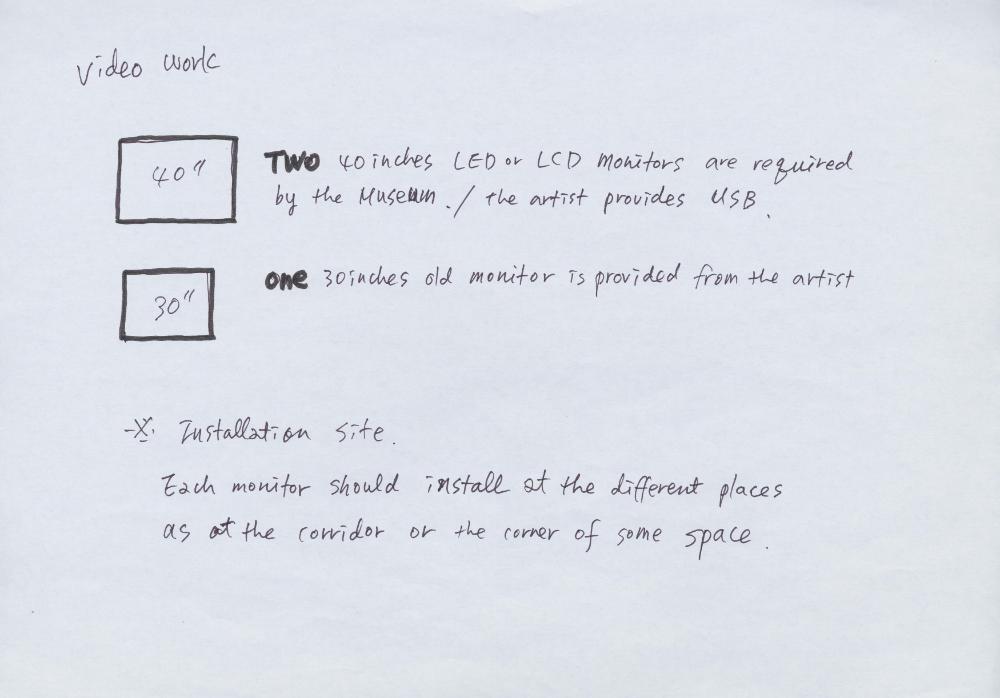 Video work
40"
TWO 40 inches LED or LCD monitors are required
by the Museum. / the artist provides USB.
30"
one 30 inches old monitor is provided from the artist
※ Installation site.
Each monitor should install at the different places
as at the corridor or the corner of some space.